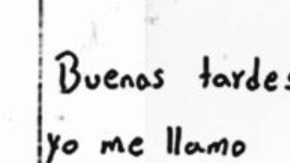 Buenas tardes
yo me llamo